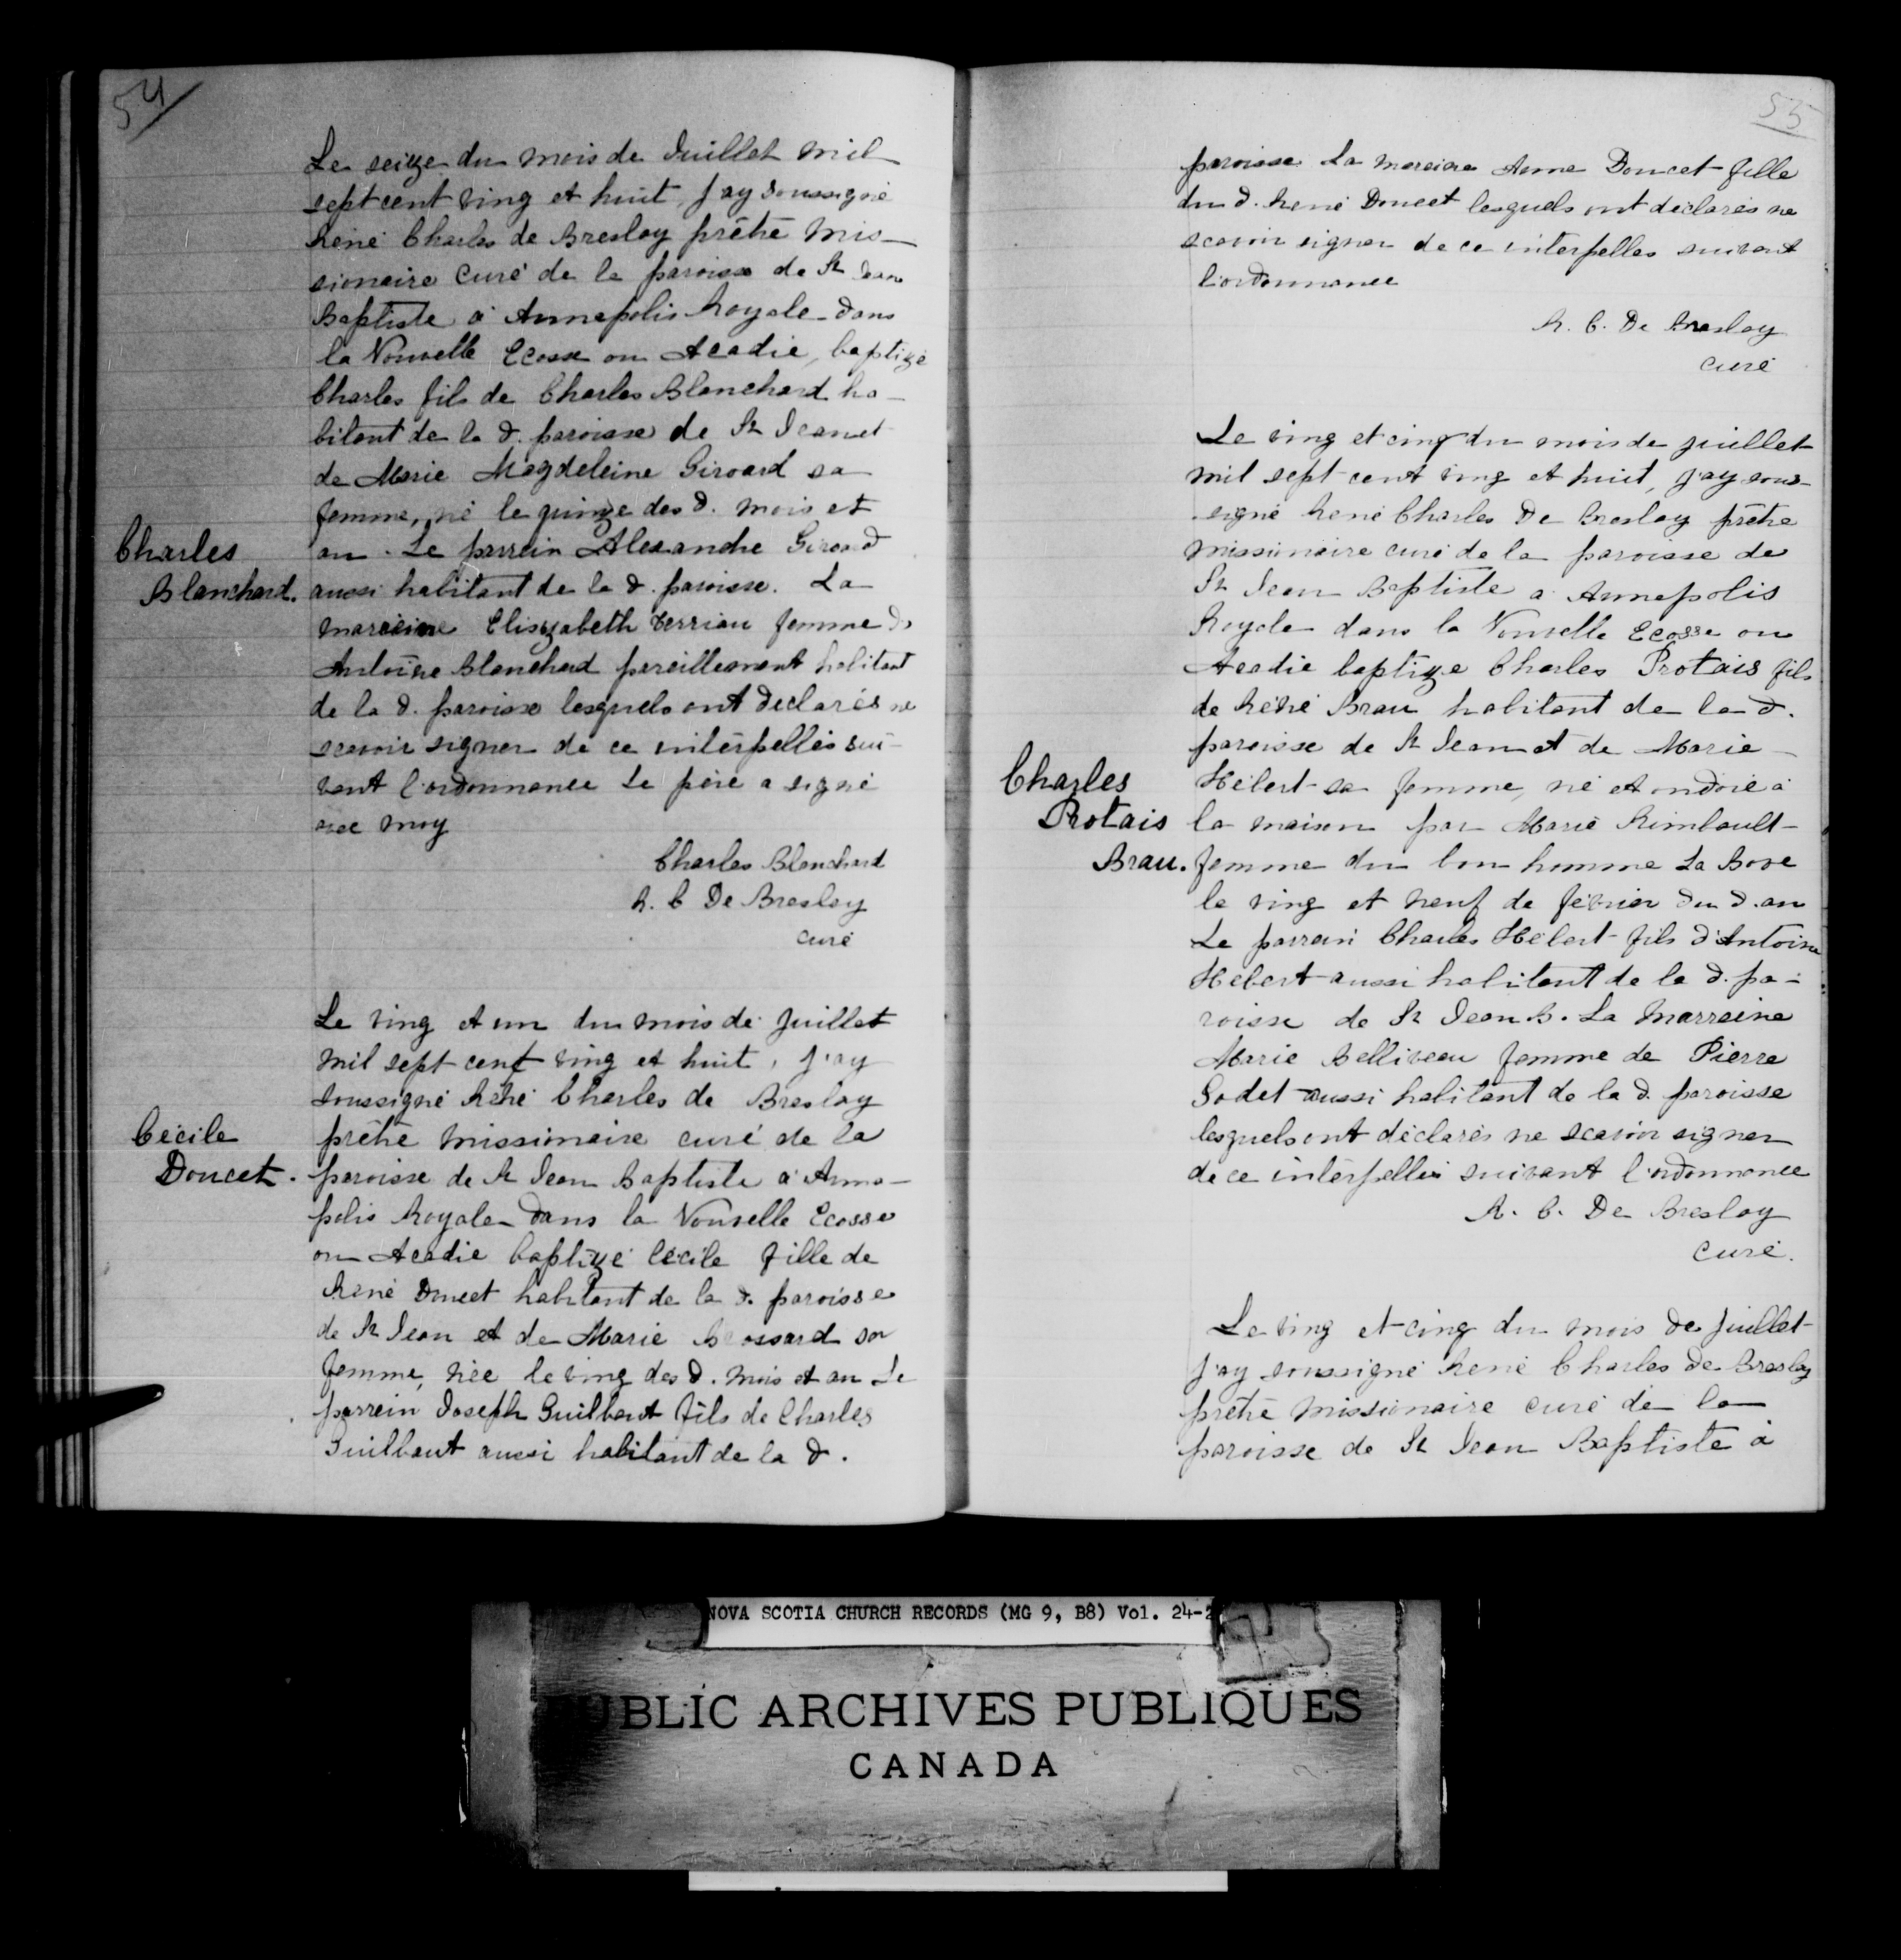 54
Le seize du mois de Juillet mil
sept cent ving et huit, j'ay soussigné
René Charles de Breslay prêtre mis-
sionaire curé de la paroisse de St Jean
Baptiste à Annapolis Royale dans
la Nouvelle Ecosse ou Acadie, baptizé
Charles fils de Charles Blanchard ha-
bitant de la d. paroisse de St Jean et
de Marie Magdeleine Girouard sa
femme, né le quinze des d. mois et
Charles
Blanchard.
an. Le parrein Alexandre Girouard
aussi habitant de la d. paroisse. La
marreine Elisyzabeth Terriau femme d
Antoine Blanchard pareillement habitant
de la d. paroisse lesquels ont declarés ne
scavoir signer de ce interpellés sui-
vant l'ordonnance Le père a signé
avec moy
Charles Blanchard
R. C De Breslay
curé
Le ving et un du mois de Juillet
mil sept cent ving et huit, j'ay
soussigné René Charles de Breslay
Cécile
Doucet.
prêtre missionaire curé de la
paroisse de St Jean Baptiste à Anna-
polis Royale dans la Nouvelle Ecosse
ou Acadie baptizé Cécile fille de
René Doucet habitant de la d. paroisse
de St Jean et de Marie Brossard sa
femme, née le ving des d. mois et an Le
parrein Joseph Guilbaut fils de Charles
Guilbaut aussi habitant de la d.
55
paroisse La mareine Anne Doucet fille
du d. René Doucet lesquels ont déclarés ne
scavoir signer de ce interpellés suivant
l'ordonnance
R. C. De Breslay
curé
Le ving et cinq du mois de juillet
mil sept cent ving et huit, j'ay sous-
signé René Charles De Breslay prêtre
missionaire curé de la paroisse de
St Jean Baptiste a Annapolis
Royale dans la Nouvelle Ecosse ou
Acadie baptize Charles Protais fils
de René Brau habitant de la d.
paroisse de St Jean et de Marie
Charles
Protais
Brau.
Hébert sa femme, né et ondoié à
la maison par Marie Rimbault
femme du bon homme La Bove
le ving et neuf de février du d. an
Le parrein Charles Hébert fils d'Antoine
Hébert aussi habitant de la d. pa-
roisse de St Jean B. La Marreine
Marie Belliveau femme de Pierre
Godet aussi habitant de la d. paroisse
lesquels ont déclarés ne scavoir signer
de ce interpellés suivant l'ordonnance
R. C. De Breslay
curé.
Le ving et cinq du mois de juillet
j'ay soussigné René Charles de Breslay
prêtre missionaire curé de la
paroisse de St Jean Baptiste à
NOVA SCOTIA CHURCH RECORDS (MG 9, B8) Vol. 24-2
PUBLIC ARCHIVES PUBLIQUES
CANADA